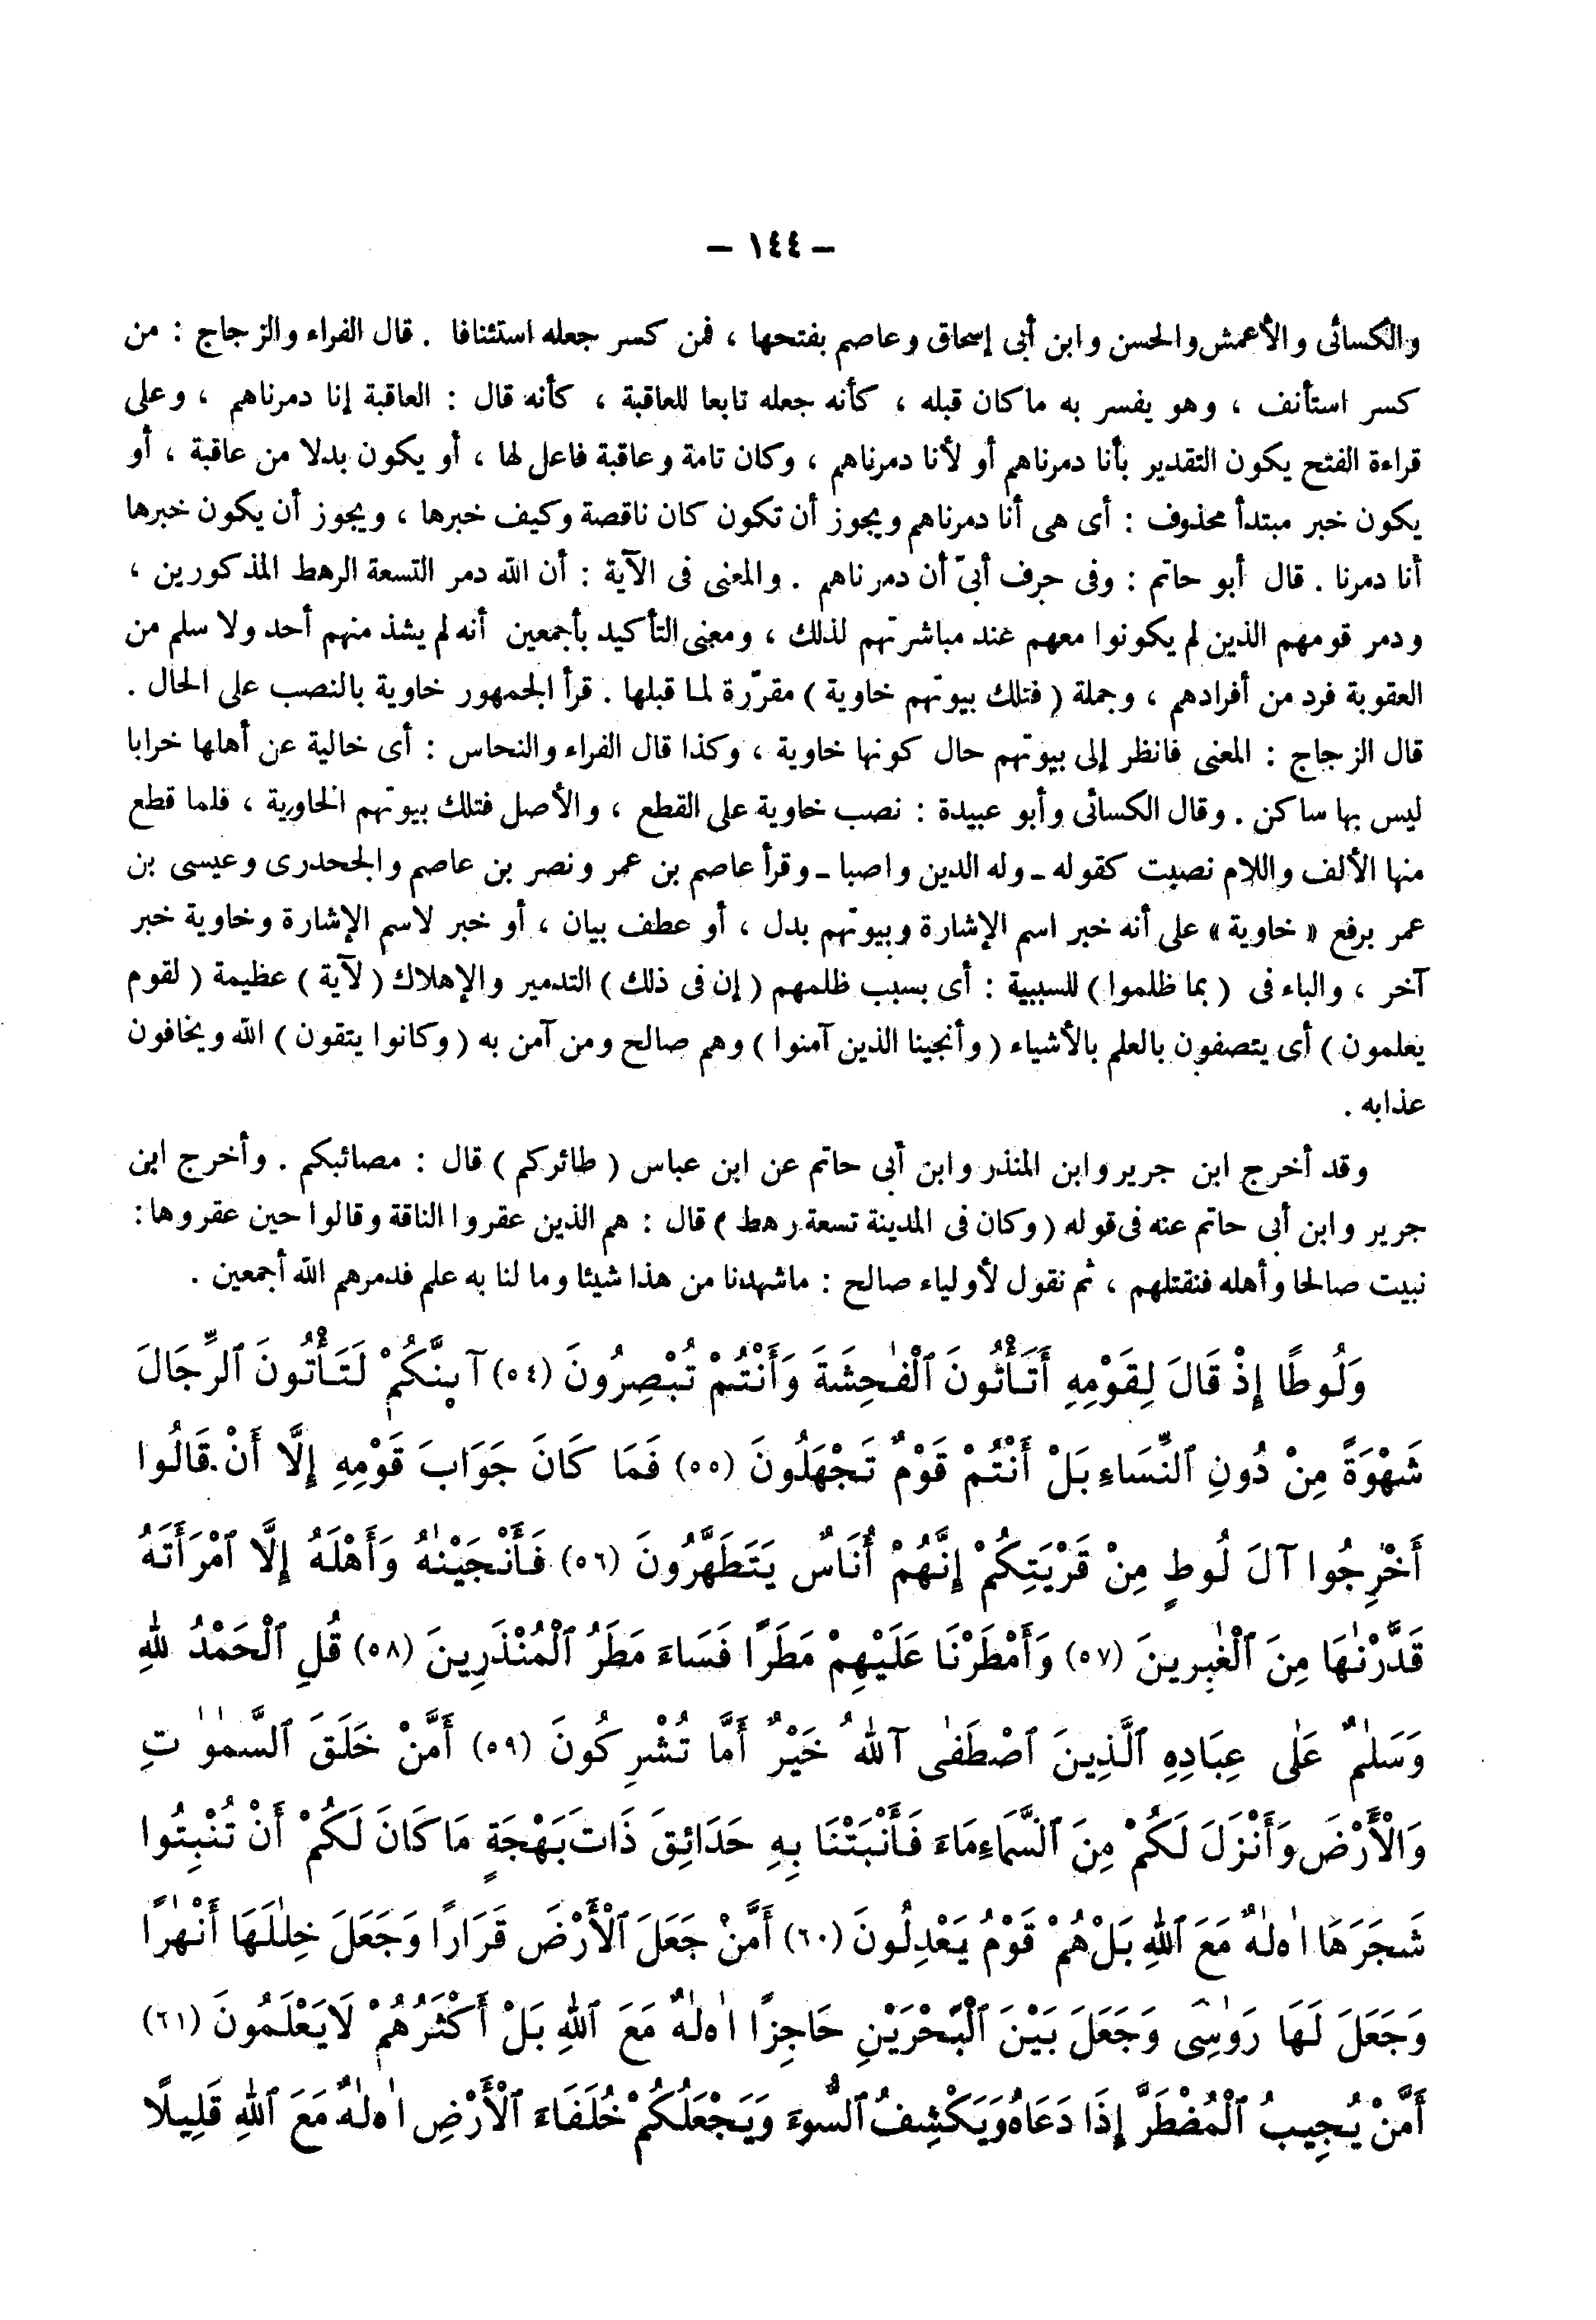 – ١٤٤ –
والكسائى والأعمش والحسن وابن أبى إسحاق وعاصم بفتحها ، فمن كسر جعله استئنافا . قال الفراء والزجاج : من
كسر استأنف ، وهو يفسر به ما كان قبله ، كأنه جعله تابعا للعاقبة ، كأنه قال : العاقبة إنا دمرناهم ، وعلى
قراءة الفتح يكون التقدير بأنا دمرناهم أو لأنا دمرناهم ، وكان تامة وعاقبة فاعل لها ، أو يكون بدلا من عاقبة ، أو
يكون خبر مبتدأ محذوف : أى هى أنا دمرناهم ويجوز أن تكون كان ناقصة وكيف خبرها ، ويجوز أن يكون خبرها
أنا دمرنا . قال أبو حاتم : وفى حرف أبىّ أن دمرناهم . والمعنى فى الآية : أن الله دمر التسعة الرهط المذكورين ،
ودمر قومهم الذين لم يكونوا معهم عند مباشرتهم لذلك ، ومعنى التأكيد بأجمعين أنه لم يشذ منهم أحد ولا سلم من
العقوبة فرد من أفرادهم ، وجملة ( فتلك بيوتهم خاوية ) مقرّرة لما قبلها . قرأ الجمهور خاوية بالنصب على الحال .
قال الزجاج : المعنى فانظر إلى بيوتهم حال كونها خاوية ، وكذا قال الفراء والنحاس : أى خالية عن أهلها خرابا
ليس بها ساكن . وقال الكسائى وأبو عبيدة : نصب خاوية على القطع ، والأصل فتلك بيوتهم الخاوية ، فلما قطع
منها الألف واللام نصبت كقوله ـ وله الدين واصبا ـ وقرأ عاصم بن عمر ونصر بن عاصم والجحدرى وعيسى بن
عمر برفع « خاوية » على أنه خبر اسم الإشارة وبيوتهم بدل ، أو عطف بيان ، أو خبر لاسم الإشارة وخاوية خبر
آخر ، والباء فى ( بما ظلموا ) للسببية : أى بسبب ظلمهم ( إن فى ذلك ) التدمير والإهلاك ( لآية ) عظيمة ( لقوم
يعلمون ) أى يتصفون بالعلم بالأشياء ( وأنجينا الذين آمنوا ) وهم صالح ومن آمن به ( وكانوا يتقون ) الله ويخافون
عذابه .
وقد أخرج ابن جرير وابن المنذر وابن أبى حاتم عن ابن عباس ( طائركم ) قال : مصائبكم . وأخرج ابن
جرير وابن أبى حاتم عنه فى قوله ( وكان فى المدينة تسعة رهط ) قال : هم الذين عقروا الناقة وقالوا حين عقروها :
نبيت صالحا وأهله فنقتلهم ، ثم نقول لأولياء صالح : ما شهدنا من هذا شيئا وما لنا به علم فدمرهم الله أجمعين .
وَلُوطًا إِذْ قَالَ لِقَوْمِهِ أَتَأْتُونَ ٱلْفٰحِشَةَ وَأَنْتُمْ تُبْصِرُونَ (٥٤) آئِنَّكُمْ لَتَأْتُونَ ٱلرِّجَالَ
شَهْوَةً مِنْ دُونِ ٱلنِّسَاءِ بَلْ أَنْتُمْ قَوْمٌ تَجْهَلُونَ (٥٥) فَمَا كَانَ جَوَابَ قَوْمِهِ إِلَّا أَنْ قَالُوا
أَخْرِجُوا آلَ لُوطٍ مِنْ قَرْيَتِكُمْ إِنَّهُمْ أُنَاسٌ يَتَطَهَّرُونَ (٥٦) فَأَنْجَيْنٰهُ وَأَهْلَهُ إِلَّا ٱمْرَأَتَهُ
قَدَّرْنٰهَا مِنَ ٱلْغٰبِرِينَ (٥٧) وَأَمْطَرْنَا عَلَيْهِمْ مَطَرًا فَسَاءَ مَطَرُ ٱلْمُنْذَرِينَ (٥٨) قُلِ ٱلْحَمْدُ لِلّٰهِ
وَسَلٰمٌ عَلٰى عِبَادِهِ ٱلَّذِينَ ٱصْطَفٰى آللّٰهُ خَيْرٌ أَمَّا تُشْرِكُونَ (٥٩) أَمَّنْ خَلَقَ ٱلسَّمٰوٰتِ
وَالْأَرْضَ وَأَنْزَلَ لَكُمْ مِنَ ٱلسَّمَاءِ مَاءً فَأَنْبَتْنَا بِهِ حَدَائِقَ ذَاتَ بَهْجَةٍ مَا كَانَ لَكُمْ أَنْ تُنْبِتُوا
شَجَرَهَا أَءِلٰهٌ مَعَ ٱللّٰهِ بَلْ هُمْ قَوْمٌ يَعْدِلُونَ (٦٠) أَمَّنْ جَعَلَ ٱلْأَرْضَ قَرَارًا وَجَعَلَ خِلٰلَهَا أَنْهٰرًا
وَجَعَلَ لَهَا رَوٰسِىَ وَجَعَلَ بَيْنَ ٱلْبَحْرَيْنِ حَاجِزًا أَءِلٰهٌ مَعَ ٱللّٰهِ بَلْ أَكْثَرُهُمْ لَا يَعْلَمُونَ (٦١)
أَمَّنْ يُجِيبُ ٱلْمُضْطَرَّ إِذَا دَعَاهُ وَيَكْشِفُ ٱلسُّوءَ وَيَجْعَلُكُمْ خُلَفَاءَ ٱلْأَرْضِ أَءِلٰهٌ مَعَ ٱللّٰهِ قَلِيلًا